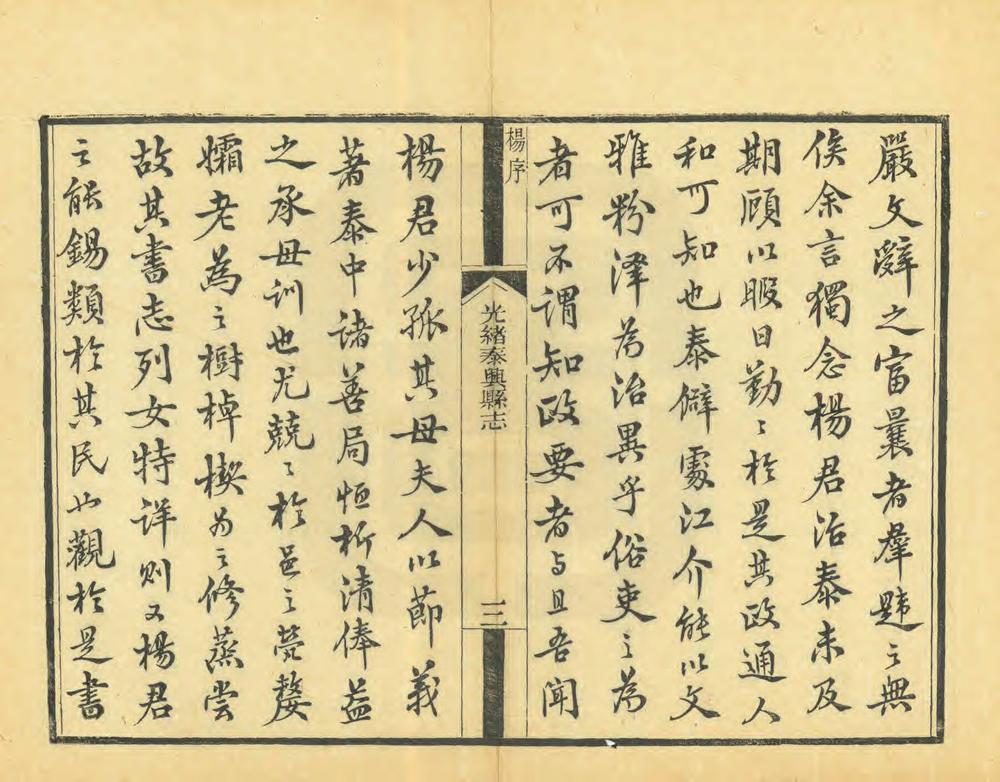 嚴文辭之富曩者羣題之無
俟余言獨念楊君治泰未及
期頋以暇日勤〻於是其政通人
和可知也泰僻處江介能以文
雅粉澤為治異乎俗吏之為
者可不謂知政要者与且吾聞
楊序
光緒泰興縣志
三
楊君少孤其母夫人以節義
著泰中諸善局恒析清俸益
之承母訓也尤兢〻於邑之煢嫠
孀老為之樹棹楔为之修蒸尝
故其書志列女特详则又楊君
之能錫類於其民也觀於是書